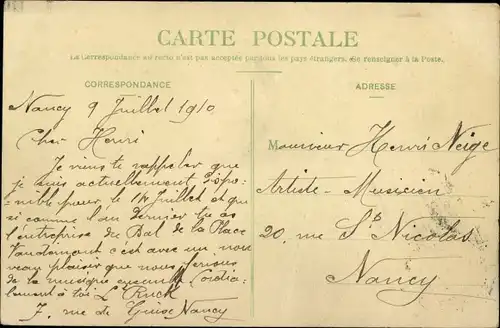 CARTE POSTALE
La Correspondance au recto n'est pas acceptée par tous les pays étrangers. Se renseigner à la Poste.
CORRESPONDANCE
Nancy 9 Juillet 1910
Cher Henri
Je viens te rappeler que
je suis actuellement dispo-
nible pour le 14 Juillet et que
si comme l'an dernier tu as
l'entreprise du Bal de la Place
c'est avec un nou
veau plaisir que nous ferions
de la musique Cordia-
lement à toi
7. rue de Guise Nancy
ADRESSE
Monsieur Henri Neige
Artiste-Musicien
20, rue St Nicolas,
Nancy